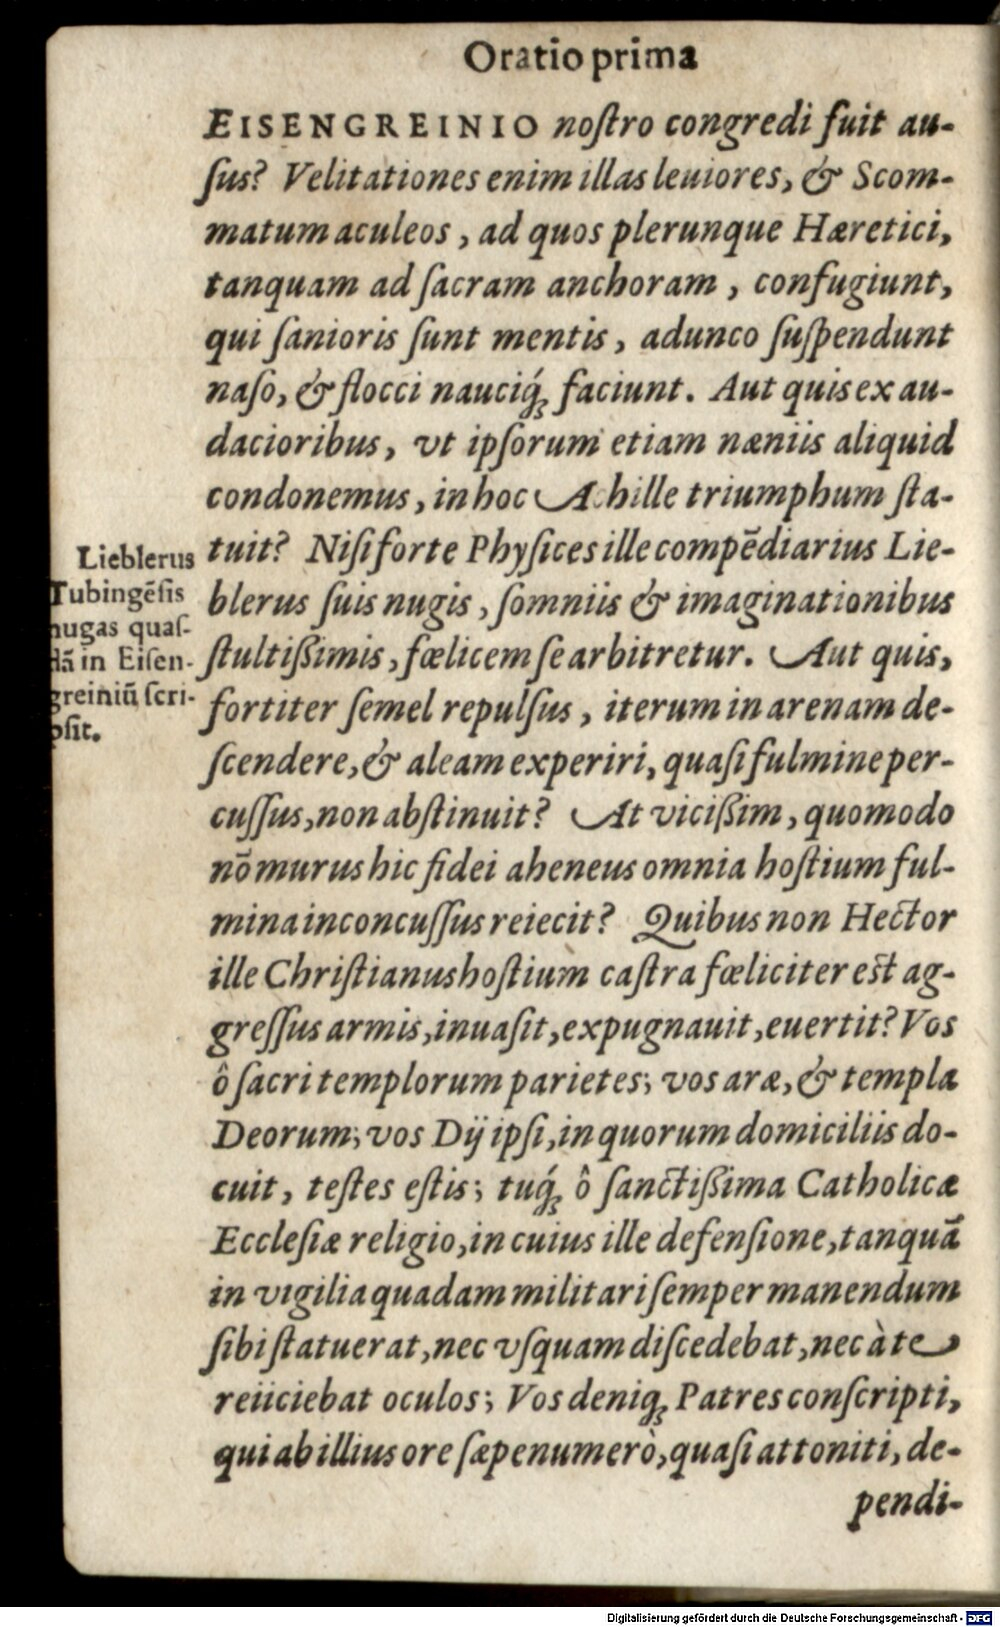 Oratio prima
EISENGREINIO noſtro congredi fuit au-
ſus? Velitationes enim illas leuiores, & Scom-
matum aculeos, ad quos plerunque Hæretici,
tanquam ad ſacram anchoram, confugiunt,
qui ſanioris ſunt mentis, adunco ſuſpendunt
naſo, & flocci nauciq́; faciunt. Aut quis ex au-
dacioribus, vt ipſorum etiam næniis aliquid
condonemus, in hoc Achille triumphum ſta-
tuit? Niſi forte Phyſices ille compẽdiarius Lie-
blerus ſuis nugis, ſomniis & imaginationibus
ſtultißimis, fœlicem ſe arbitretur. Aut quis,
fortiter ſemel repulſus, iterum in arenam de-
ſcendere, & aleam experiri, quaſi fulmine per-
cuſſus, non abſtinuit? At vicißim, quomodo
nõ murus hic fidei aheneus omnia hoſtium ful-
mina inconcuſſus reiecit? Quibus non Hector
ille Chriſtianus hoſtium caſtra fœliciter eſt ag-
greſſus armis, inuaſit, expugnauit, euertit? Vos
ô ſacri templorum parietes; vos aræ, & templa
Deorum; vos Dij ipſi, in quorum domiciliis do-
cuit, teſtes eſtis; tuq́; ô ſanctißima Catholicæ
Eccleſiæ religio, in cuius ille defenſione, tanquã
in vigilia quadam militari ſemper manendum
ſibi ſtatuerat, nec vſquam diſcedebat, nec à te
reiiciebat oculos; Vos deniq; Patres conſcripti,
qui ab illius ore ſæpenumerò, quaſi attoniti, de-
pendi-
Lieblerus
Tubingẽſis
nugas quaſ-
dã in Eiſen-
greiniũ ſcri-
pſit.
Digitalisierung gefördert durch die Deutsche Forschungsgemeinschaft - DFG